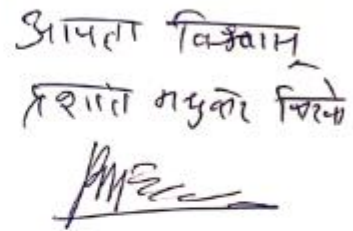 आपला विश्वासू
प्रशांत मधुकर